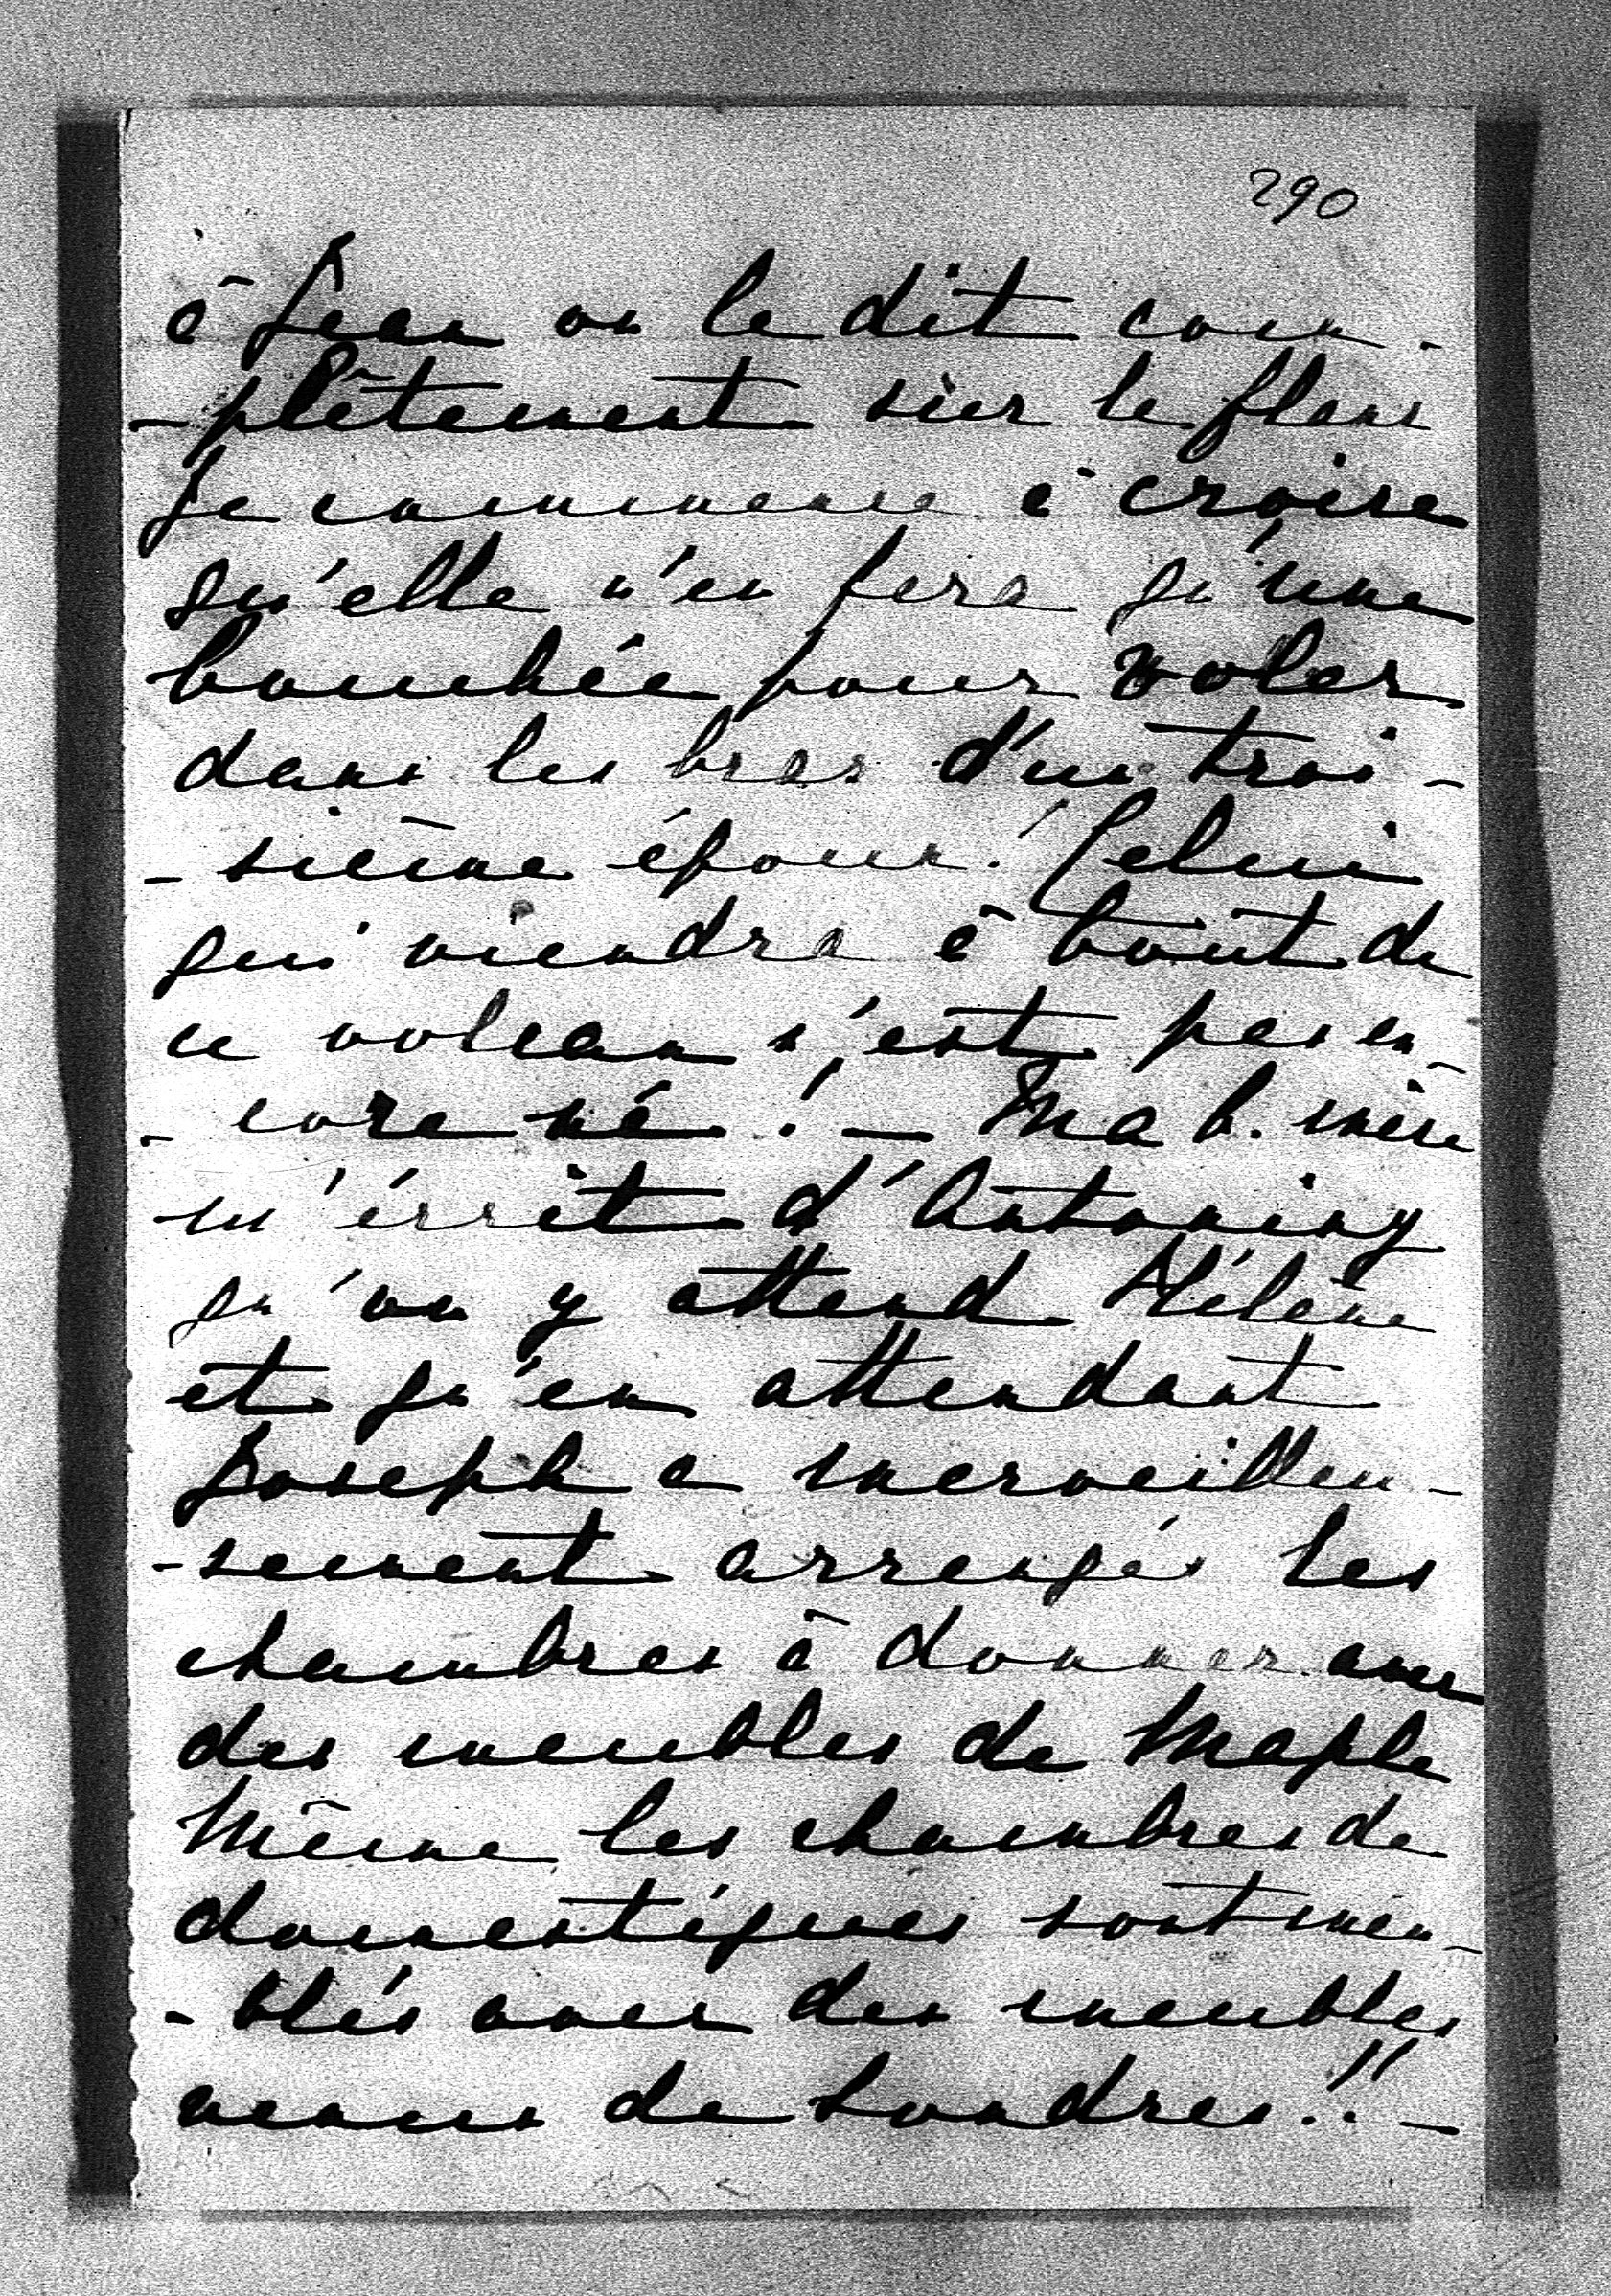 290
à Jean on le dit com-
-plètement sur le flanc
Je commence à croire
qu'elle n'en fera qu'une
bouchée pour voler
dans les bras d'un troi-
-sième époux! Celui
qui viendra à bout de
ce volcan n'est pas en-
-core né! — Ma b. mère
m'écrit d'Antoniny
qu'on y attend Hélène
et qu'en attendant
Joseph a merveilleu-
-sement arrangés les
chambres à donner avec
des meubles de Maple
Même les chambres de
domestiques sont meu-
-blés avec des meubles
venus de Londres!! —